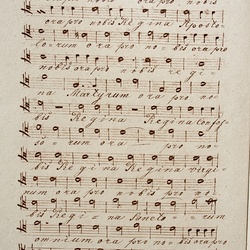 ora pro nobis
ora pro nobis Regina Aposto-
lorum ora pro nobis ora pro
nobis ora pro nobis regi-
na Martyrum ora pro no-
bis Regina Regina Confes-
sorum ora pro no-
bis Regina Regina virgi-
num ora pro nobis ora pro no-
bis Regi - na Sancto - rum
omnium ora pro nobis ora pro